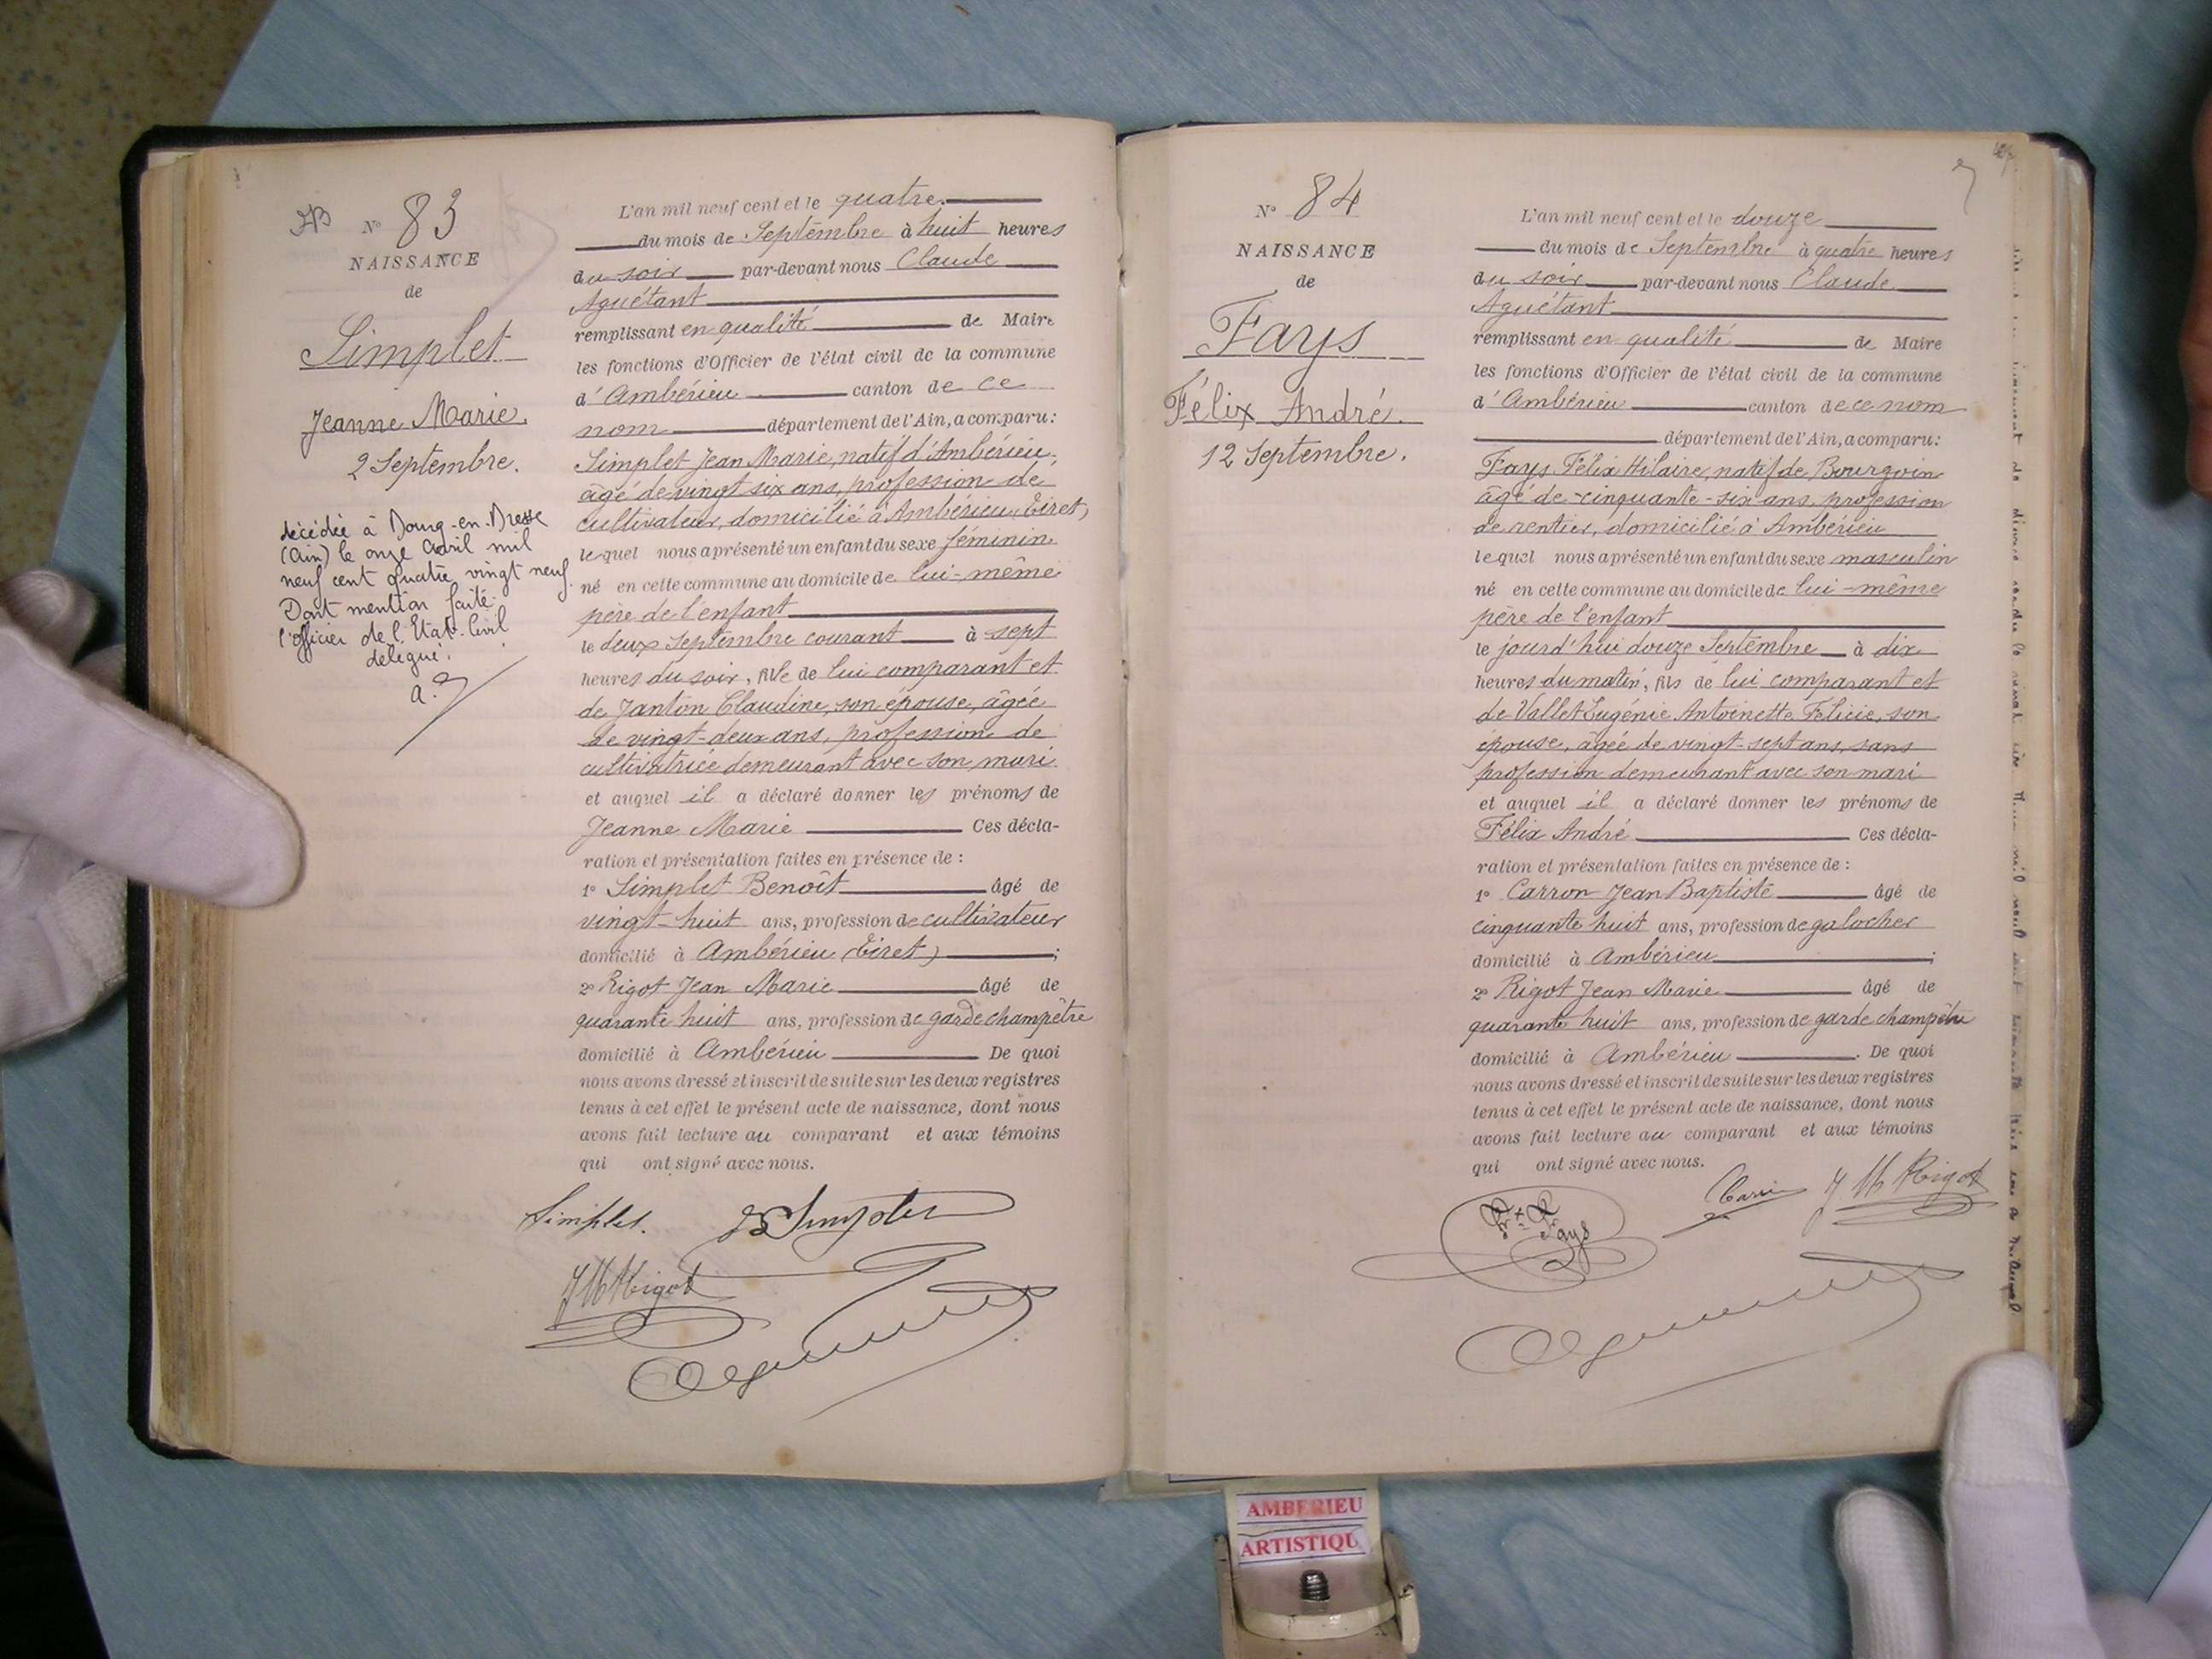 N° 83
NAISSANCE
de
Simplet
Jeanne Marie.
2 Septembre.
décédée à Bourg-en-Bresse
(Ain) le onze Avril mil
neuf cent quatre vingt neuf.
Dont mention faite.
l'officier de l'Etat-Civil
délégué.
L'an mil neuf cent et le quatre.
du mois de Septembre à huit heures
du soir par-devant nous Claude
Aguétant
remplissant en qualité de Maire
les fonctions d'Officier de l'état civil de la commune
d'Ambérieu canton de ce
nom département de l'Ain, a comparu:
Simplet Jean Marie, natif d'Ambérieu,
âgé de vingt six ans, profession de
cultivateur, domicilié à Ambérieu (Tiret)
lequel nous a présenté un enfant du sexe féminin
né en cette commune au domicile de lui-même
père de l'enfant
le deux Septembre courant à sept
heures du soir, fille de lui comparant et
de Janton Claudine, son épouse, âgée
de vingt-deux ans, profession de
cultivatrice demeurant avec son mari
et auquel il a déclaré donner les prénoms de
Jeanne Marie Ces décla-
ration et présentation faites en présence de :
1° Simplet Benoît âgé de
vingt-huit ans, profession de cultivateur
domicilié à Ambérieu (Tiret) ;
2° Rigot Jean Marie âgé de
quarante huit ans, profession de garde champêtre
domicilié à Ambérieu De quoi
nous avons dressé et inscrit de suite sur les deux registres
tenus à cet effet le présent acte de naissance, dont nous
avons fait lecture au comparant et aux témoins
qui ont signé avec nous.
Simplet. B Simplet
J M Rigot
N° 84
NAISSANCE
de
Fays
Félix André.
12 Septembre.
L'an mil neuf cent et le douze
du mois de Septembre à quatre heures
du soir par-devant nous Claude
Aguétant
remplissant en qualité de Maire
les fonctions d'Officier de l'état civil de la commune
d'Ambérieu canton de ce nom
département de l'Ain, a comparu:
Fays Félix Hilaire, natif de Bourgoin
âgé de cinquante-six ans, profession
de rentier, domicilié à Ambérieu
lequel nous a présenté un enfant du sexe masculin
né en cette commune au domicile de lui-même
père de l'enfant
le jourd'hui douze Septembre à dix
heures du matin, fils de lui comparant et
de Vallet Eugénie Antoinette Félicie, son
épouse, âgée de vingt-sept ans, sans
profession demeurant avec son mari
et auquel il a déclaré donner les prénoms de
Félix André Ces décla-
ration et présentation faites en présence de :
1° Carron Jean Baptiste âgé de
cinquante huit ans, profession de galocher
domicilié à Ambérieu ;
2° Rigot Jean Marie âgé de
quarante huit ans, profession de garde champêtre
domicilié à Ambérieu. De quoi
nous avons dressé et inscrit de suite sur les deux registres
tenus à cet effet le présent acte de naissance, dont nous
avons fait lecture au comparant et aux témoins
qui ont signé avec nous.
Fays J M Rigot
AMBERIEU
ARTISTIQU